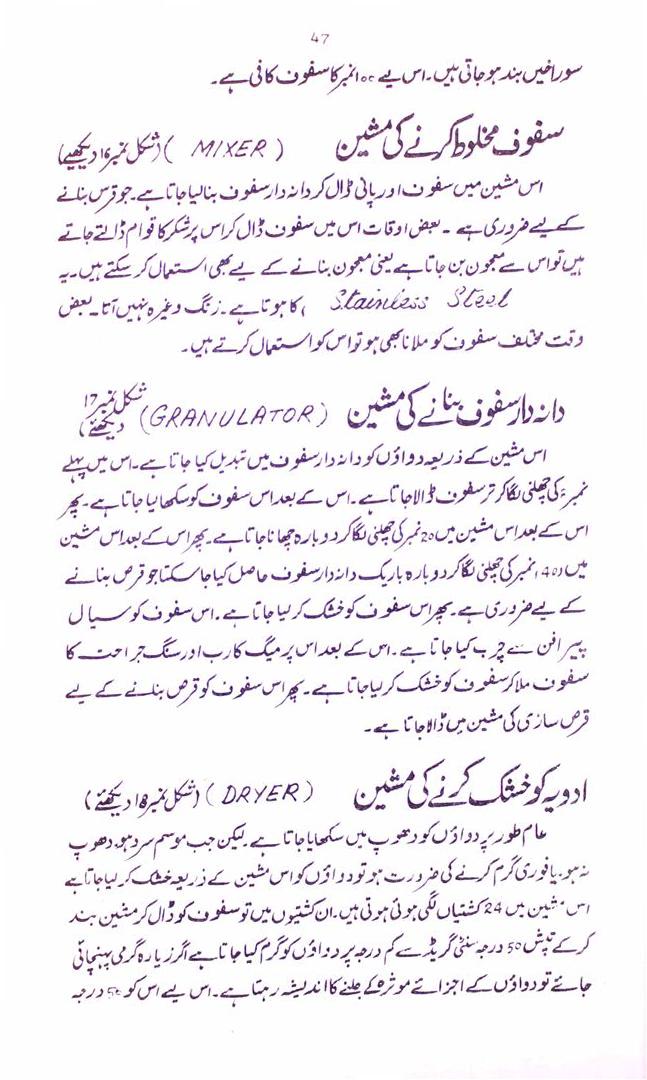 47
سوراخیں بند ہو جاتی ہیں۔ اس لیے ۱۰۰ نمبر کا سفوف کافی ہے۔
سفوف مخلوط کرنے کی مشین (MIXER) (شکل نمبر ۱۶ دیکھیے)
اس مشین میں سفوف اور پانی ڈال کر دانہ دار سفوف بنا لیا جاتا ہے۔ جو قرص بنانے
کے لیے ضروری ہے ۔ بعض اوقات اس میں سفوف ڈال کر اس پر شکر کا قوام ڈالتے جاتے
ہیں تو اس سے معجون بن جاتا ہے یعنی معجون بنانے کے لیے بھی استعمال کر سکتے ہیں۔ یہ
Stainless Steel کا ہوتا ہے۔ زنگ وغیرہ نہیں آتا۔ بعض
وقت مختلف سفوف کو ملانا بھی ہو تو اس کو استعمال کرتے ہیں۔
دانہ دار سفوف بنانے کی مشین (GRANULATOR) (شکل نمبر ۱۷ دیکھئے)
اس مشین کے ذریعہ دواؤں کو دانہ دار سفوف میں تبدیل کیا جاتا ہے۔ اس میں پہلے
نمبر کی چھلنی لگا کر تر سفوف ڈالا جاتا ہے۔ اس کے بعد اس سفوف کو سکھایا جاتا ہے۔ پھر
اس کے بعد اس مشین میں 20 نمبر کی چھلنی لگا کر دوبارہ چھانا جاتا ہے۔ پھر اس کے بعد اس مشین
میں (40) نمبر کی چھلنی لگا کر دوبارہ باریک دانہ دار سفوف حاصل کیا جا سکتا جو قرص بنانے
کے لیے ضروری ہے۔ پھر اس سفوف کو خشک کر لیا جاتا ہے۔ اس سفوف کو سیال
پیرافن سے چرب کیا جاتا ہے۔ اس کے بعد اس پر میگ کارب اور سنگ جراحت کا
سفوف ملا کر سفوف کو خشک کر لیا جاتا ہے۔ پھر اس سفوف کو قرص بنانے کے لیے
قرص سازی کی مشین میں ڈالا جاتا ہے۔
ادویہ کو خشک کرنے کی مشین (DRYER) (شکل نمبر ۱۸ دیکھئے)
عام طور پر دواؤں کو دھوپ میں سکھایا جاتا ہے لیکن جب موسم سرد ہو، دھوپ
نہ ہو۔ یا فوری گرم کرنے کی ضرورت ہو تو دواؤں کو اس مشین کے ذریعہ خشک کر لیا جاتا ہے
اس مشین میں 24 کشتیاں لگی ہوئی ہوتی ہیں۔ ان کشتیوں میں تو سفوف کو ڈال کر مشین بند
کر کے تپش 50 درجہ سنٹی گریڈ سے کم درجہ پر دواؤں کو گرم کیا جاتا ہے اگر زیادہ گرمی پہنچائی
جائے تو دواؤں کے اجزائے موثرہ کے جلنے کا اندیشہ رہتا ہے۔ اس لیے اس کو 50 درجہ